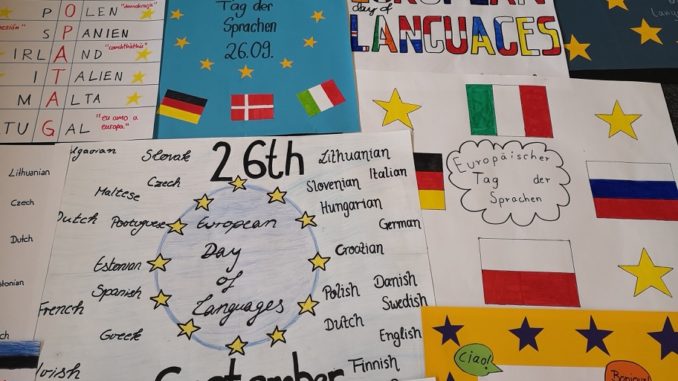 POLEN "demokracja"
SPANIEN
IRLAND
ITALIEN
MALTA
TUGAL "eu amo a europa"
Tag der
Sprachen
26.09.
day of
LANGUAGES
Europäischer
Tag der
Sprachen
Lithuanian
Czech
Dutch
26th
European
Day
of
Languages
September
Slovak
Czech
Maltese
Dutch
Portuguese
Estonian
Spanish
French
Greek
Lithuanian
Italian
Slovenian
Hungarian
German
Croatian
Polish
Danish
Swedish
Dutch
English
Finnish
Ciao!